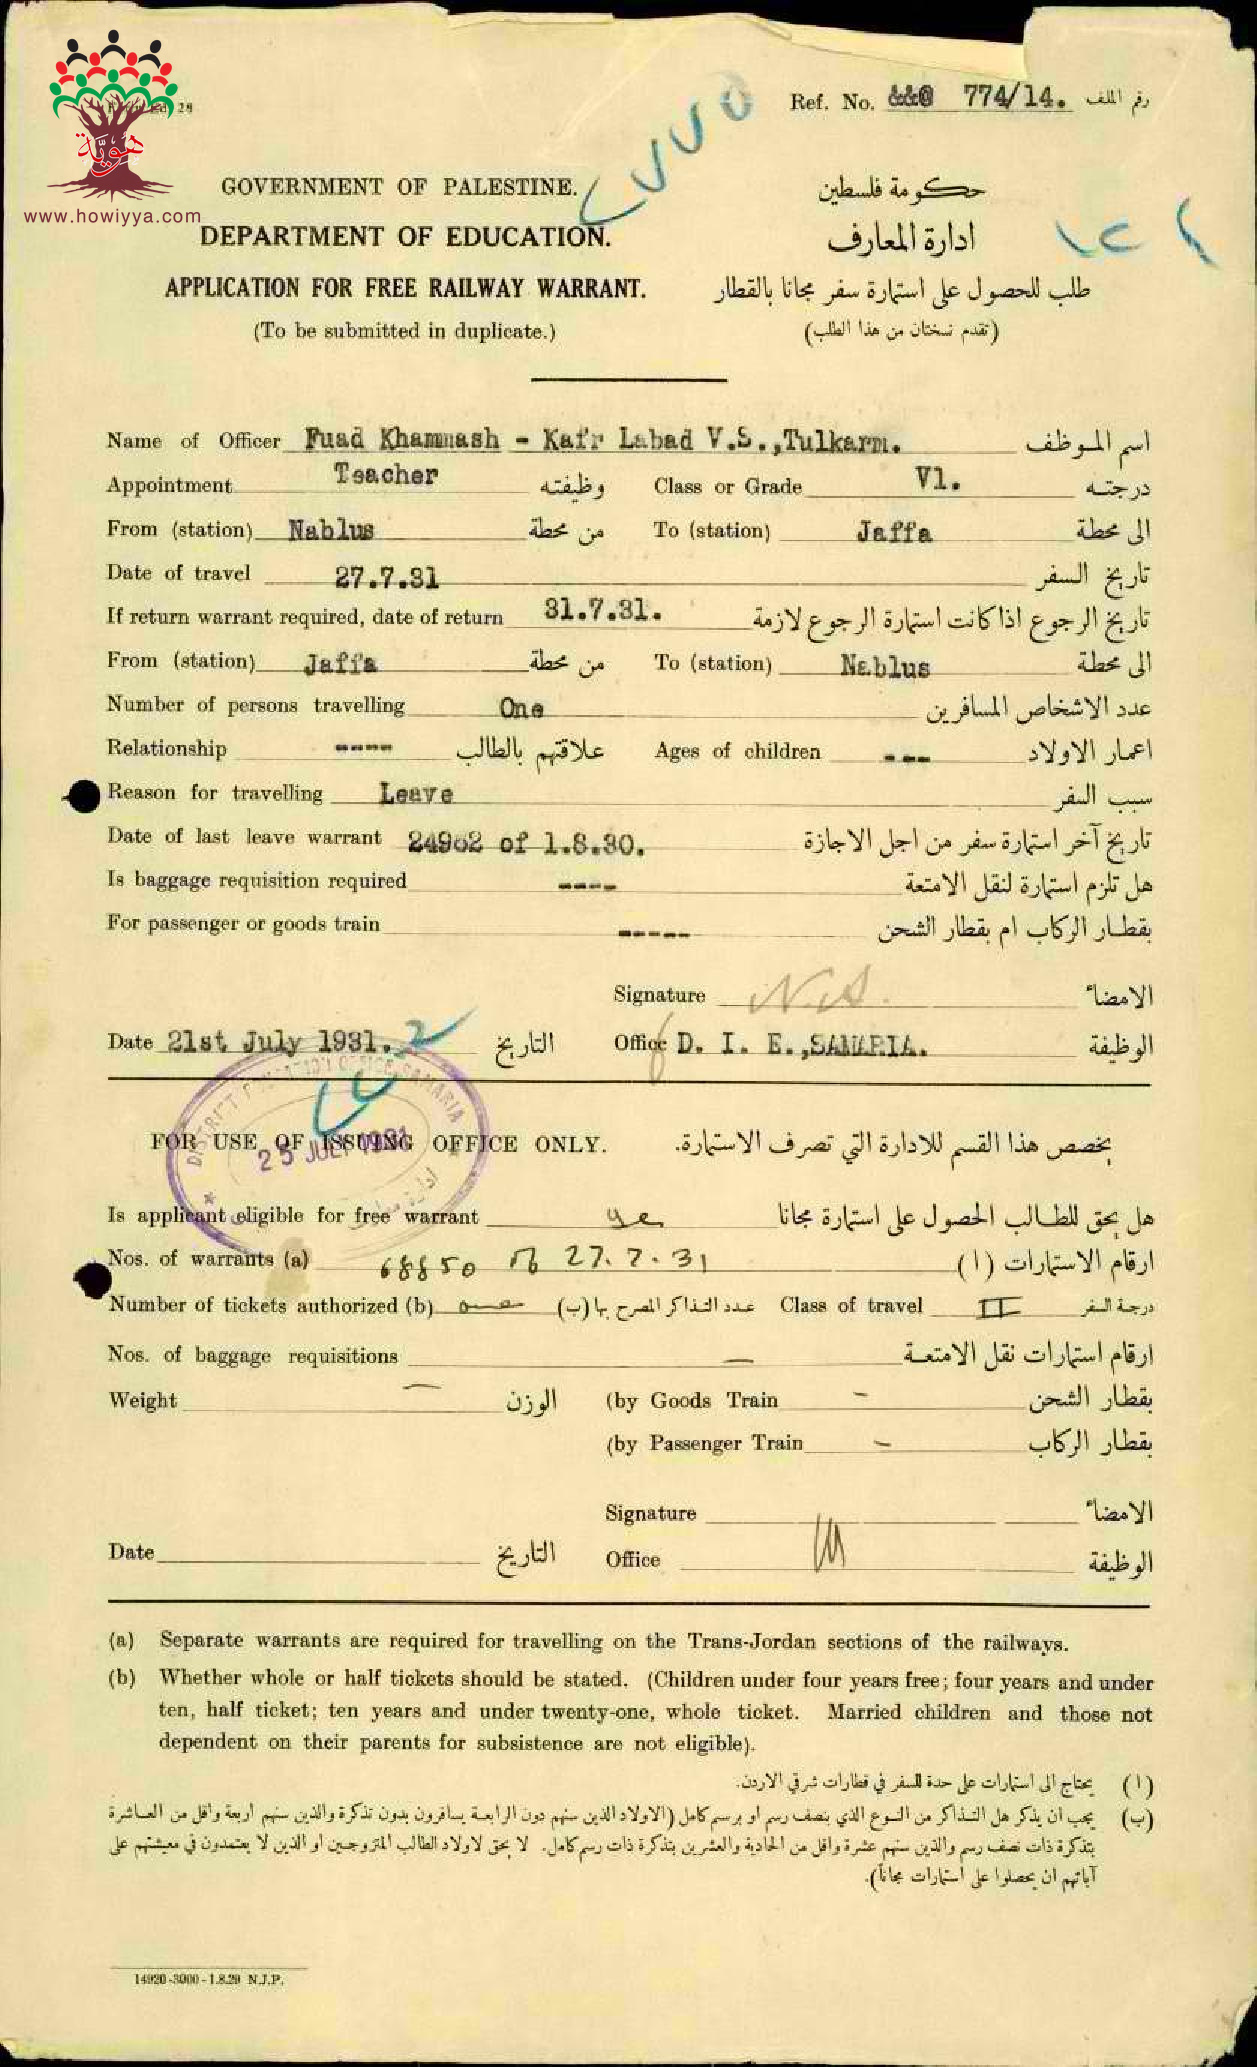 هويّة
www.howiyya.com
Ref. No. &&@ 774/14. رقم الملف
GOVERNMENT OF PALESTINE. حكومة فلسطين
DEPARTMENT OF EDUCATION. ادارة المعارف
APPLICATION FOR FREE RAILWAY WARRANT. طلب للحصول على استمارة سفر مجانا بالقطار
(To be submitted in duplicate.) (تقدم نسختان من هذا الطلب)
Name of Officer Fuad Khammash - Kafr Labad V.S.,Tulkarm. اسم الموظف
Appointment Teacher وظيفته Class or Grade V1. درجته
From (station) Nablus من محطة To (station) Jaffa الى محطة
Date of travel 27.7.31 تاريخ السفر
If return warrant required, date of return 31.7.31. تاريخ الرجوع اذا كانت استمارة الرجوع لازمة
From (station) Jaffa من محطة To (station) Nablus الى محطة
Number of persons travelling One عدد الاشخاص المسافرين
Relationship ---- علاقتهم بالطالب Ages of children --- اعمار الاولاد
Reason for travelling Leave سبب السفر
Date of last leave warrant 24962 of 1.8.30. تاريخ آخر استمارة سفر من اجل الاجازة
Is baggage requisition required ---- هل تلزم استمارة لنقل الامتعة
For passenger or goods train ----- بقطار الركاب ام بقطار الشحن
Signature N.S. الامضاء
Date 21st July 1931. التاريخ Office D. I. E.,SAMARIA. الوظيفة
DISTRICT EDUCATION OFFICE, SAMARIA
25 JULY 1931
FOR USE OF ISSUING OFFICE ONLY. يخصص هذا القسم للادارة التي تصرف الاستمارة.
Is applicant eligible for free warrant yes هل يحق للطالب الحصول على استمارة مجانا
Nos. of warrants (a) 68850 of 27.7.31 ارقام الاستمارات (ا)
Number of tickets authorized (b) one عدد التذاكر المصرح بها (ب) Class of travel II درجة السفر
Nos. of baggage requisitions — ارقام استمارات نقل الامتعة
Weight — الوزن (by Goods Train - بقطار الشحن
(by Passenger Train - بقطار الركاب
Signature الامضاء
Date التاريخ Office الوظيفة
(a) Separate warrants are required for travelling on the Trans-Jordan sections of the railways.
(b) Whether whole or half tickets should be stated. (Children under four years free; four years and under
ten, half ticket; ten years and under twenty-one, whole ticket. Married children and those not
dependent on their parents for subsistence are not eligible).
(ا) يحتاج الى استمارات على حدة للسفر في قطارات شرقي الاردن.
(ب) يجب ان يذكر هل التذاكر من النوع الذي بنصف رسم او برسم كامل (الاولاد الذين سنهم دون الرابعة يسافرون بدون تذكرة والذين سنهم اربعة واقل من العاشرة
بتذكرة ذات نصف رسم والذين سنهم عشرة واقل من الحادية والعشرين بتذكرة ذات رسم كامل. لا يحق لاولاد الطالب المتزوجين او الذين لا يعتمدون في معيشتهم على
آبائهم ان يحصلوا على استمارات مجاناً).
14920-3000-1.8.29 N.J.P.